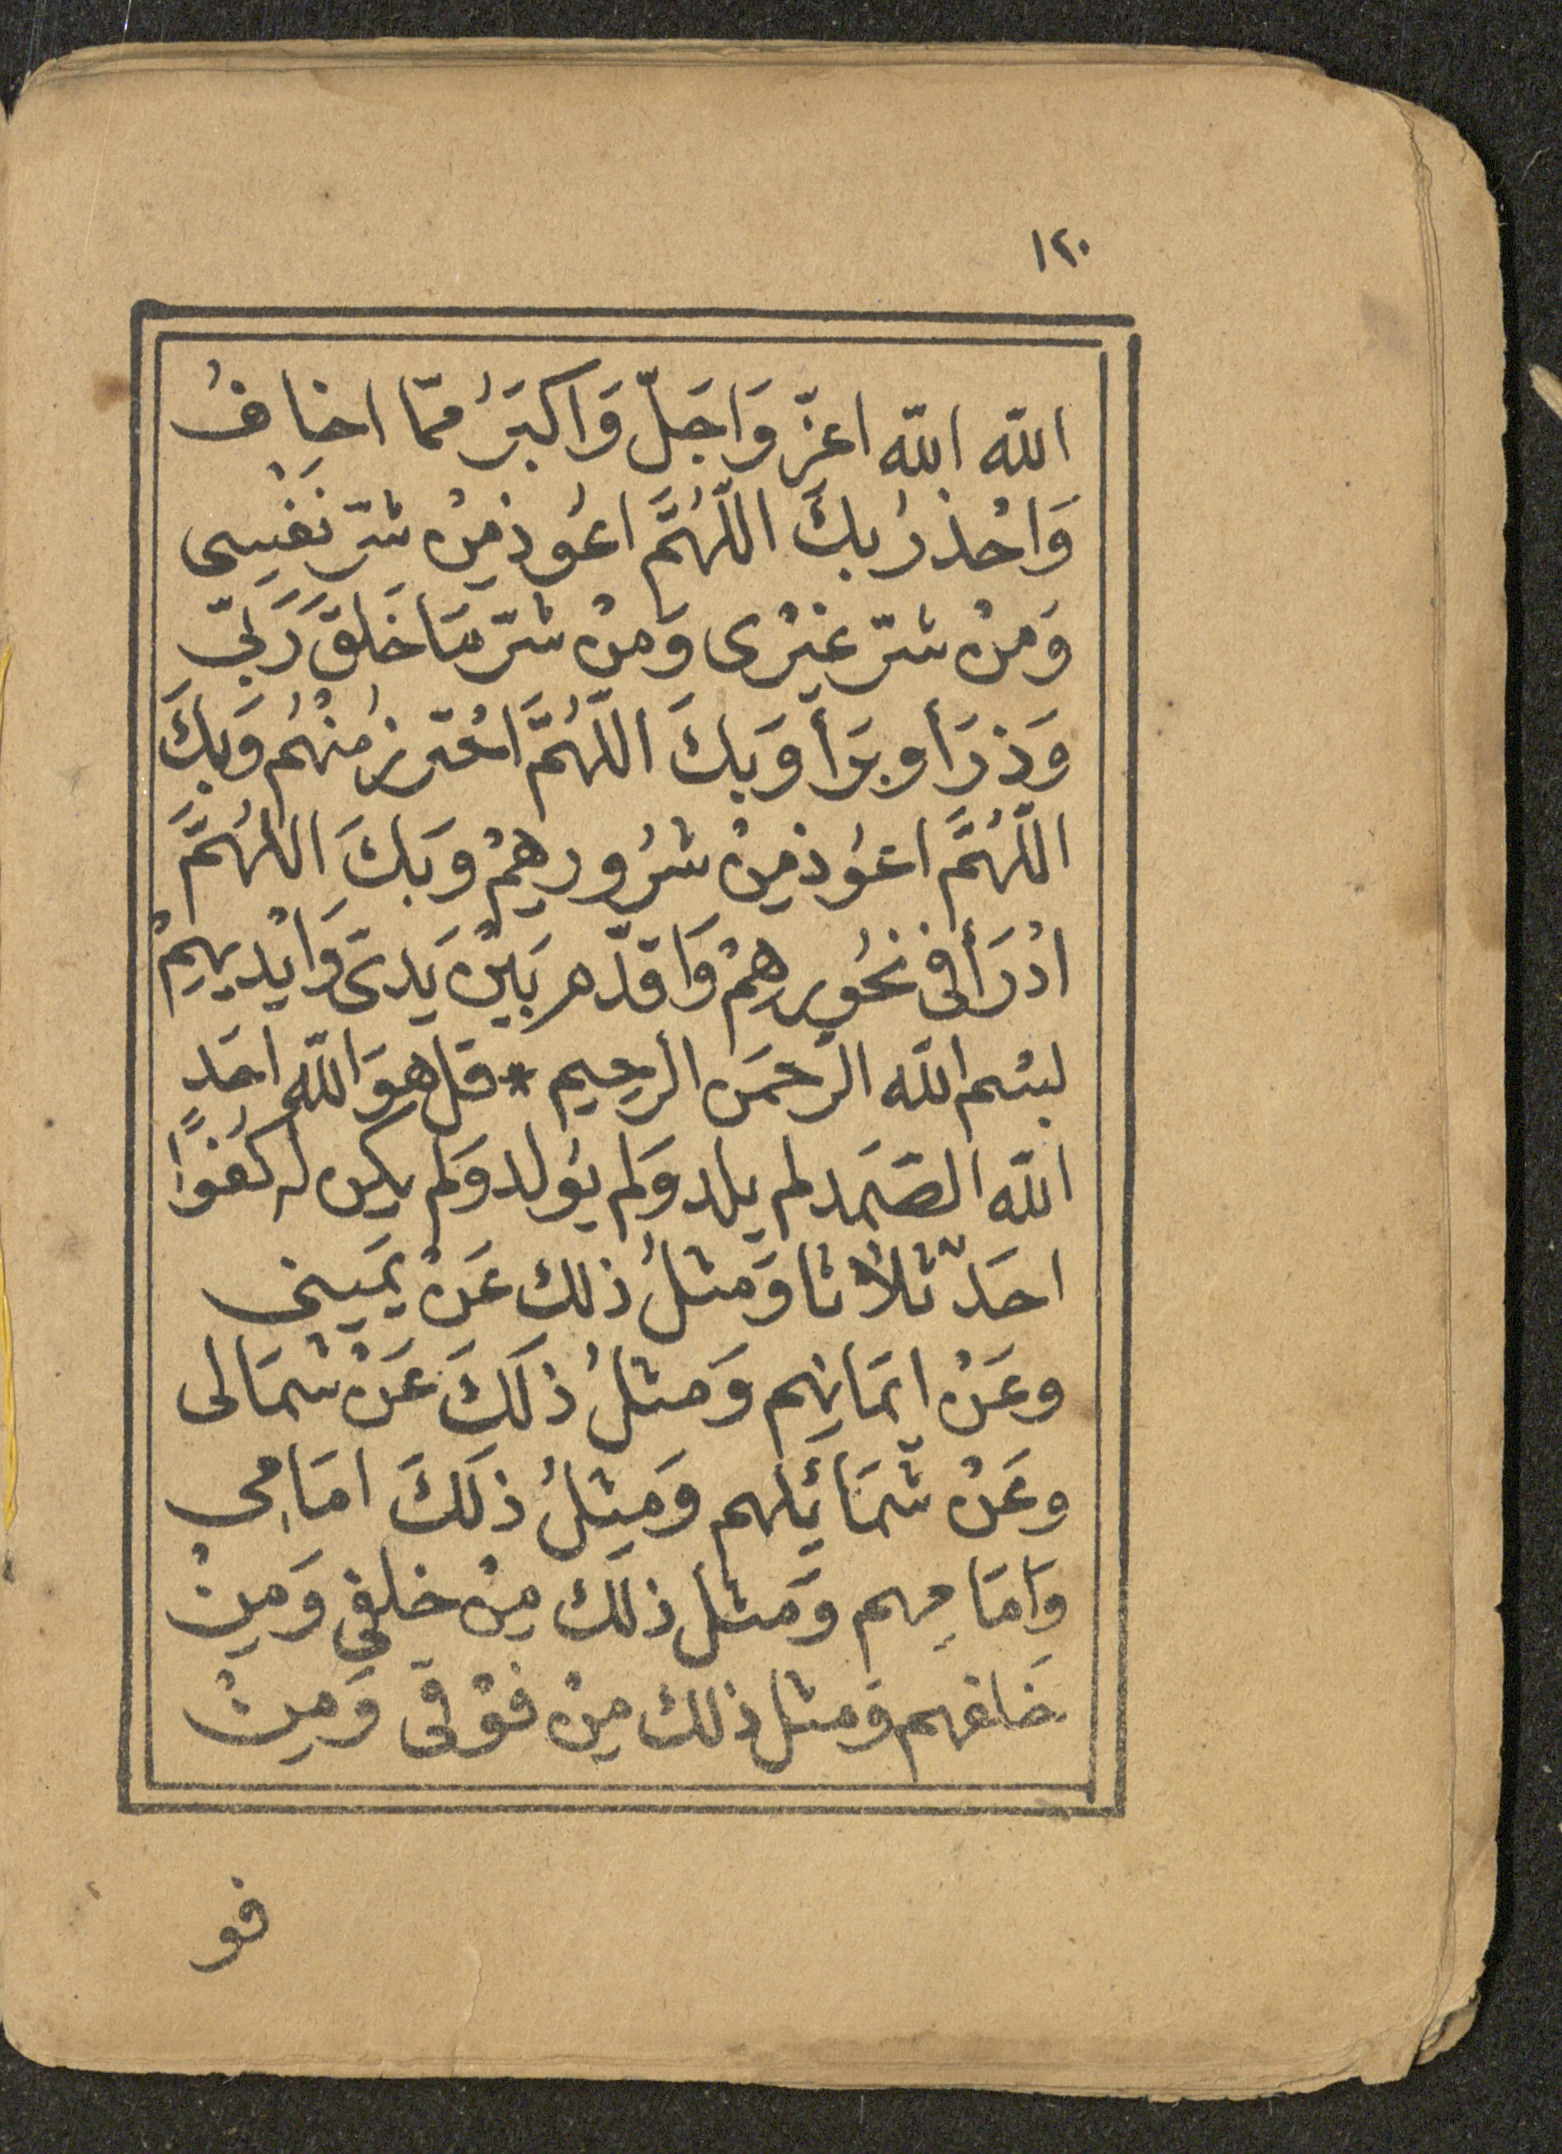 ١٢٠
الله الله اعزّ وَاجَلّ وَاكبَرُ ممّا اخافُ
وَاحْذرُ بكَ اللّهُمَّ اعُوذ مِنْ شرّ نَفْسِى
وَمنْ شرّ غيْرى وَمنْ شرّ مَا خَلقَ رَبّى
وَذرَأ وبرَأ وَبكَ اللّهُمَّ احْترزُ منْهُم وَبكَ
اللّهُمَّ اعوُذ مِنْ شرُورِهِمْ وَبكَ اللهُمَّ
ادْرَأ فى نحُورِهمْ وَاقدّم بَيْنَ يَدىَّ وَايْديهِمْ
بسْم الله الرّحمَن الرّحِيم * قل هوَ الله احَد
الله الصّمَد لم يلد وَلم يوُلد وَلم يكن له كفُوًا
احَدٌ ثلاثا وَمثلُ ذلك عَنْ يمَينى
وعَنْ ايمَانهم وَمثلُ ذلَكَ عَنْ شمَالى
وعَنْ شمَائلهم وَمِثلُ ذلَكَ امَامِى
وَامَامِهم وَمثل ذلَك مِنْ خلفِى وَمِنْ
خَلفهم وَمثل ذلك مِنْ فوْقى وَمِنْ
فو